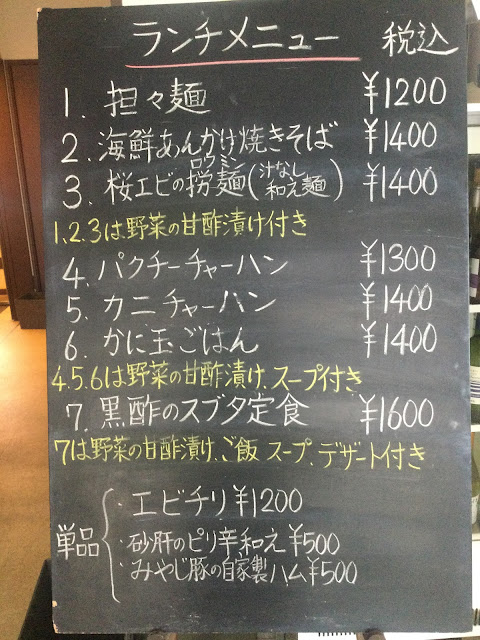 ランチメニュー 税込
1. 担々麺 ¥1200
2. 海鮮あんかけ焼きそば ¥1400
3. 桜エビの撈麺(汁なし和え麺) ¥1400
ロウミン
1.2.3は野菜の甘酢漬け付き
4. パクチーチャーハン ¥1300
5. カニチャーハン ¥1400
6. かに玉ごはん ¥1400
4.5.6は野菜の甘酢漬け、スープ付き
7. 黒酢のスブタ定食 ¥1600
7は野菜の甘酢漬け、ご飯 スープ、デザート付き
単品
・エビチリ ¥1200
・砂肝のピリ辛和え ¥500
・みやじ豚の自家製ハム ¥500